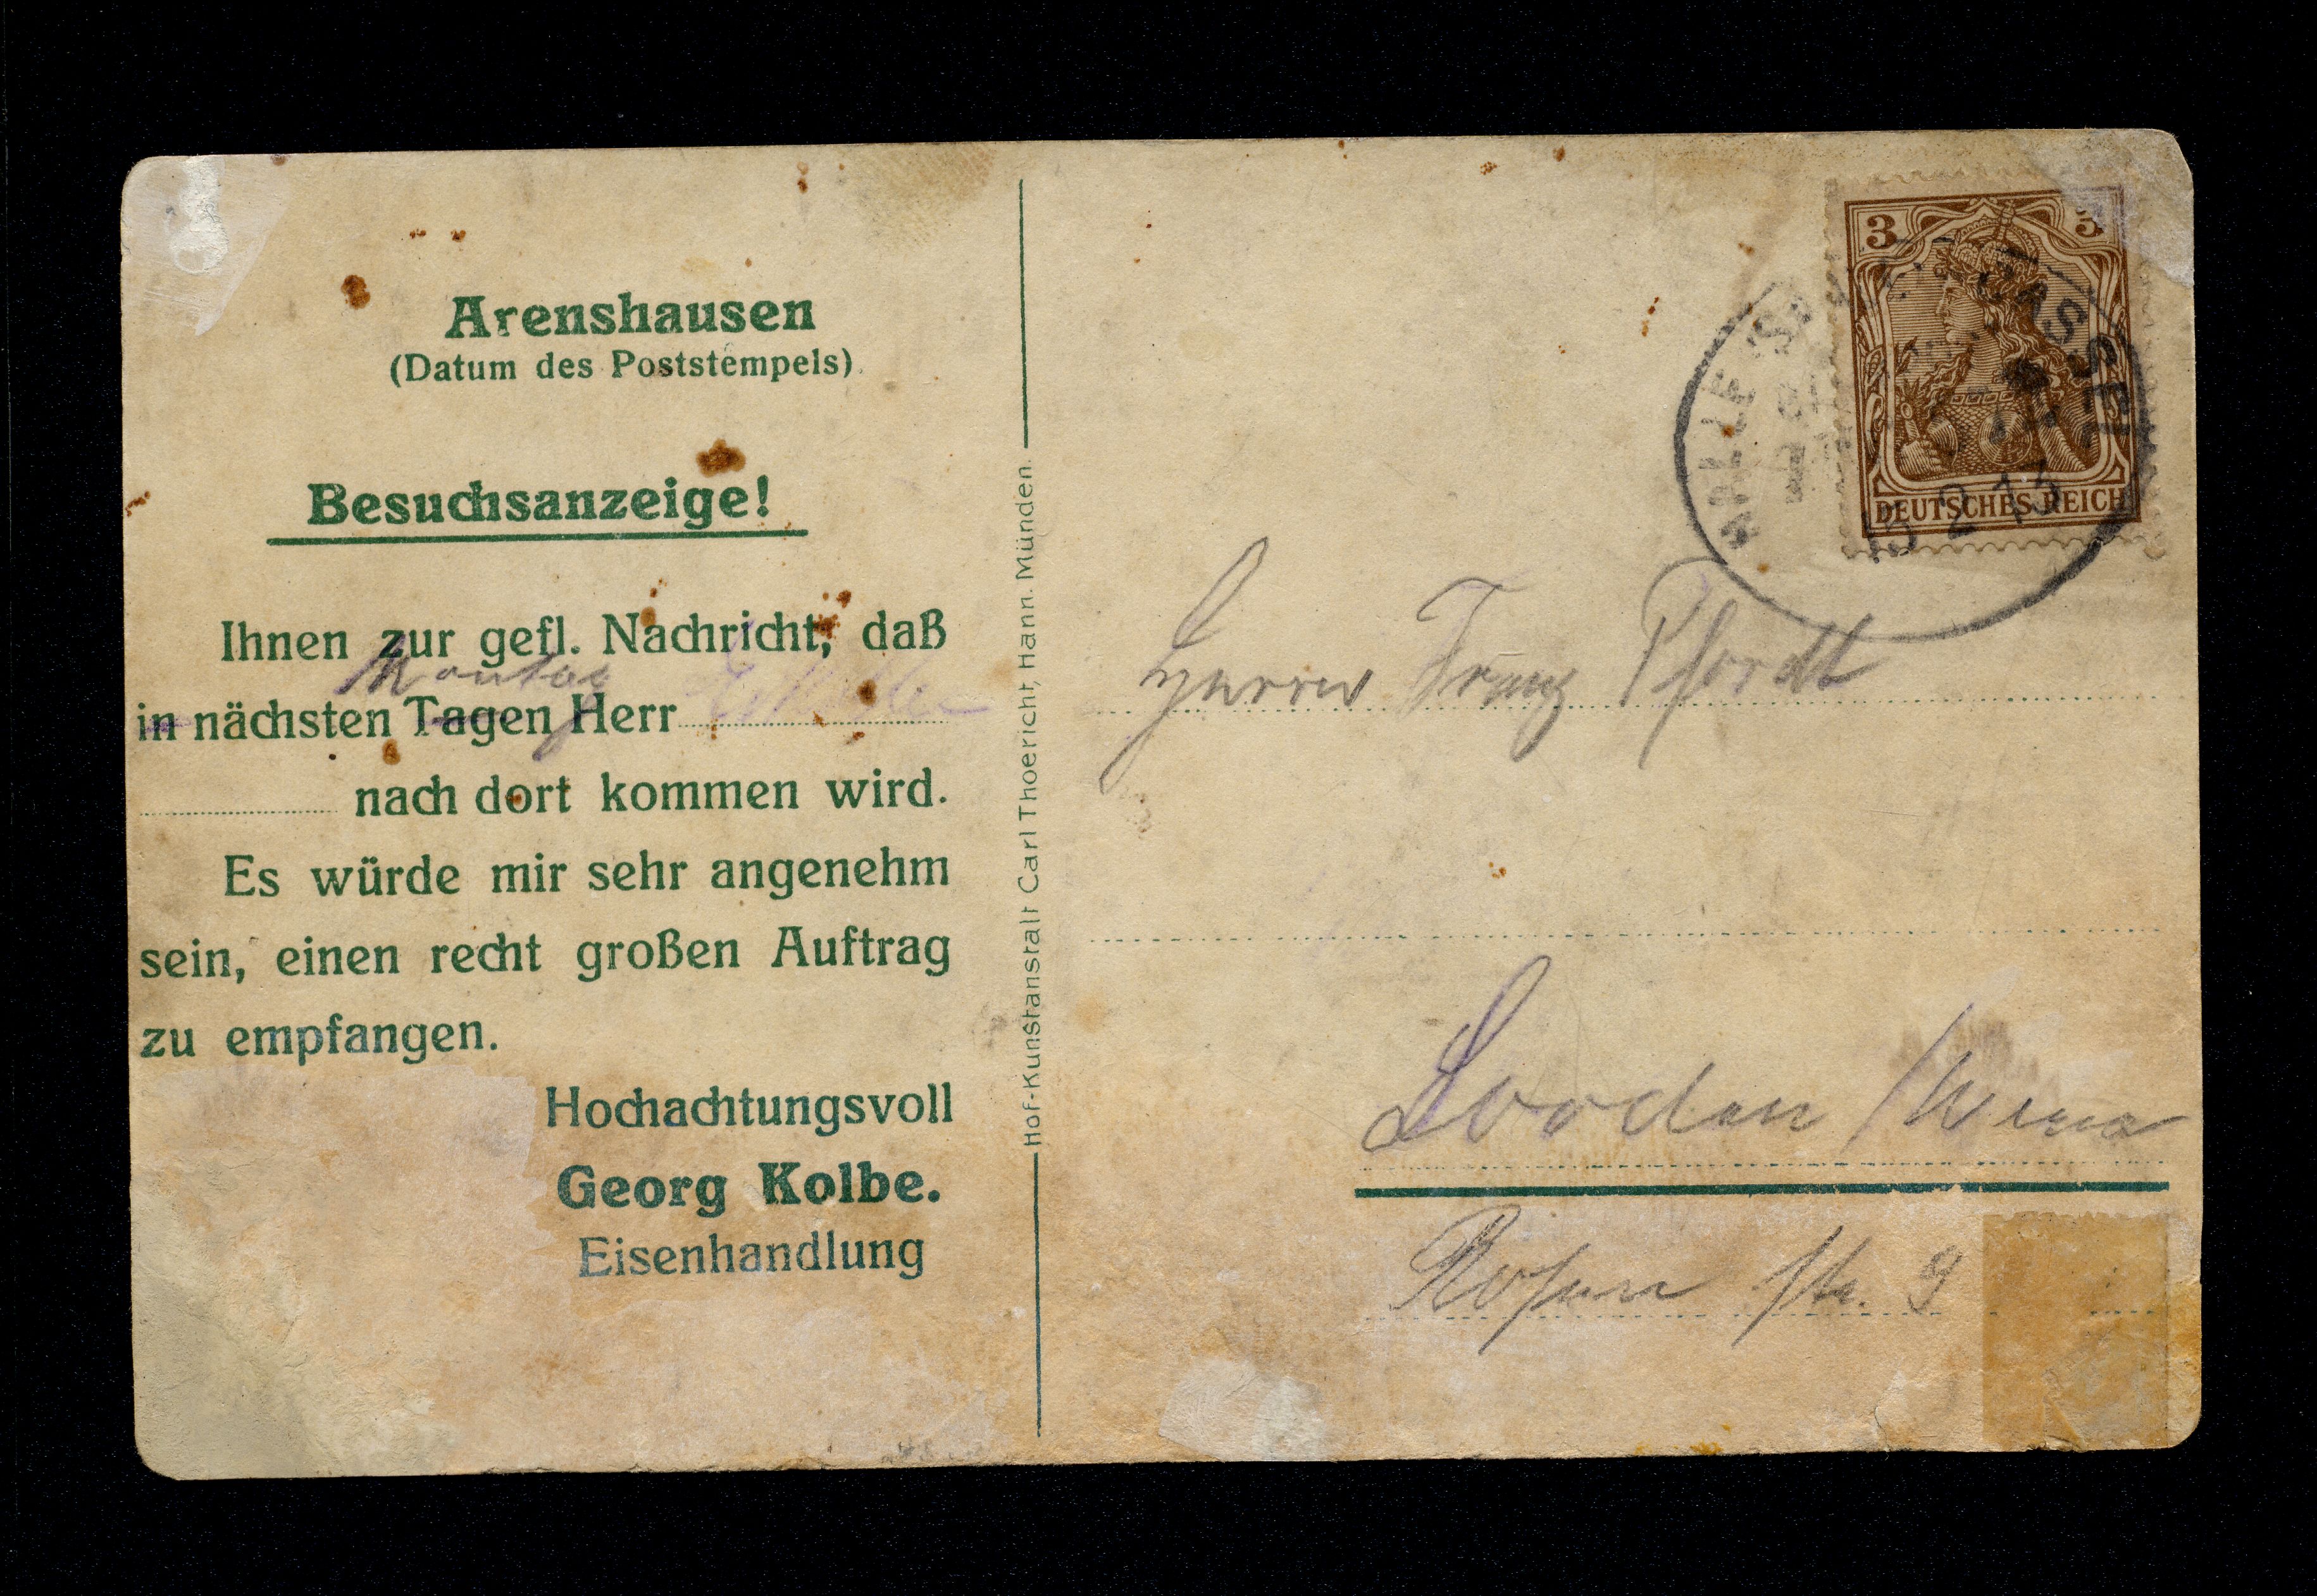 Arenshausen
(Datum des Poststempels).
Besuchsanzeige!
Ihnen zur gefl. Nachricht, daß
Montag
in nächsten Tagen Herr
nach dort kommen wird.
Es würde mir sehr angenehm
sein, einen recht großen Auftrag
zu empfangen.
Hochachtungsvoll
Georg Kolbe.
Eisenhandlung
Hof-Kunstanstalt Carl Thoericht, Hann. Münden.
3 3
DEUTSCHES REICH
HALLE CASSEL
2 13
Herrn Franz Pfordt
Sooden /Werra
Rosen str. 9